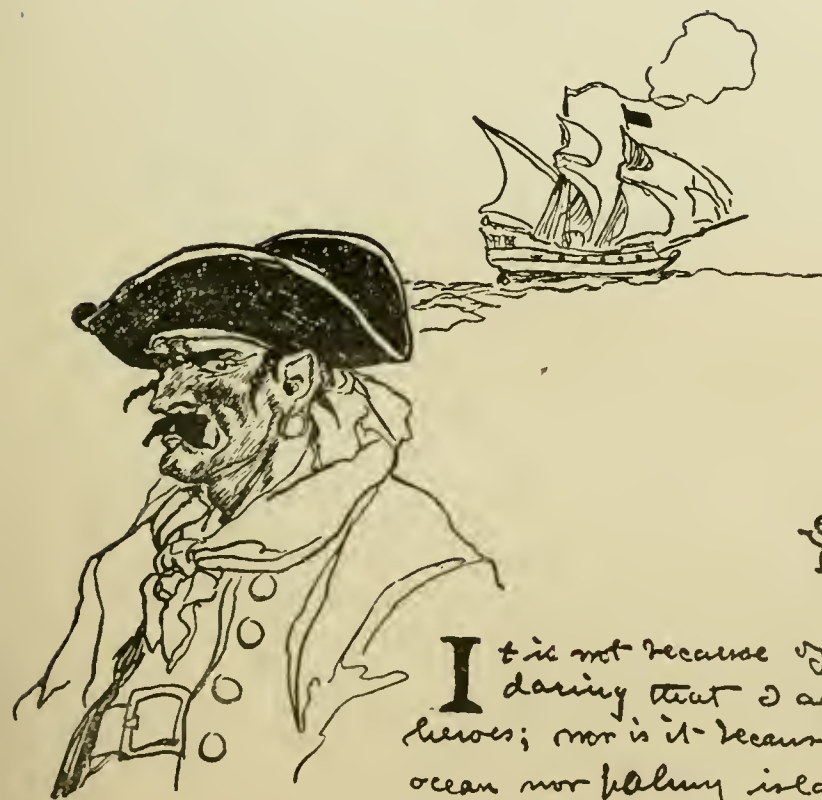 It is not because of
daring that I a
heroes; nor is it because
ocean nor palmy isla